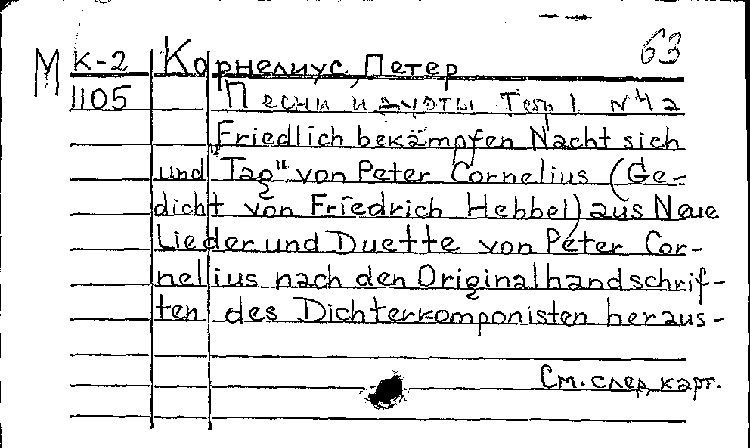 63
М К-2 Корнелиус, Петер
1105 "Песни и дуэты. Тетр 1 N 4 а
Friedlich bekämpfen Nacht sich
und Tag" von Peter Cornelius (Ge-
dicht von Friedrich Hebbel) aus Neue
Lieder und Duette von Peter Cor-
nelius nach den Originalhandschrif-
ten des Dichterkomponisten heraus-
См. след. карт.